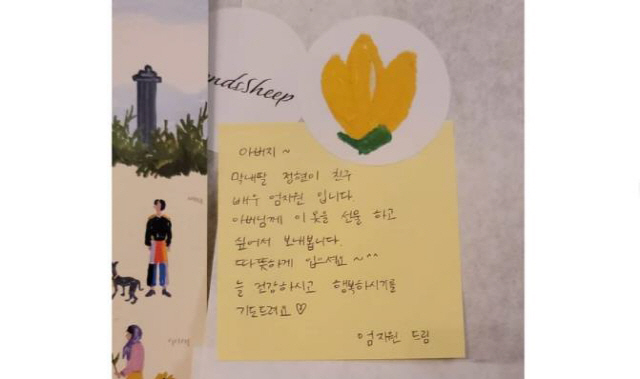 ndsSheep
아버지 ~
막내딸 정현이 친구
배우 엄지원 입니다.
아버님께 이 옷을 선물 하고
싶어서 보내봅니다.
따뜻하게 입으세요 ~^^
늘 건강하시고 행복하시기를
기도드려요 ♡
엄지원 드림